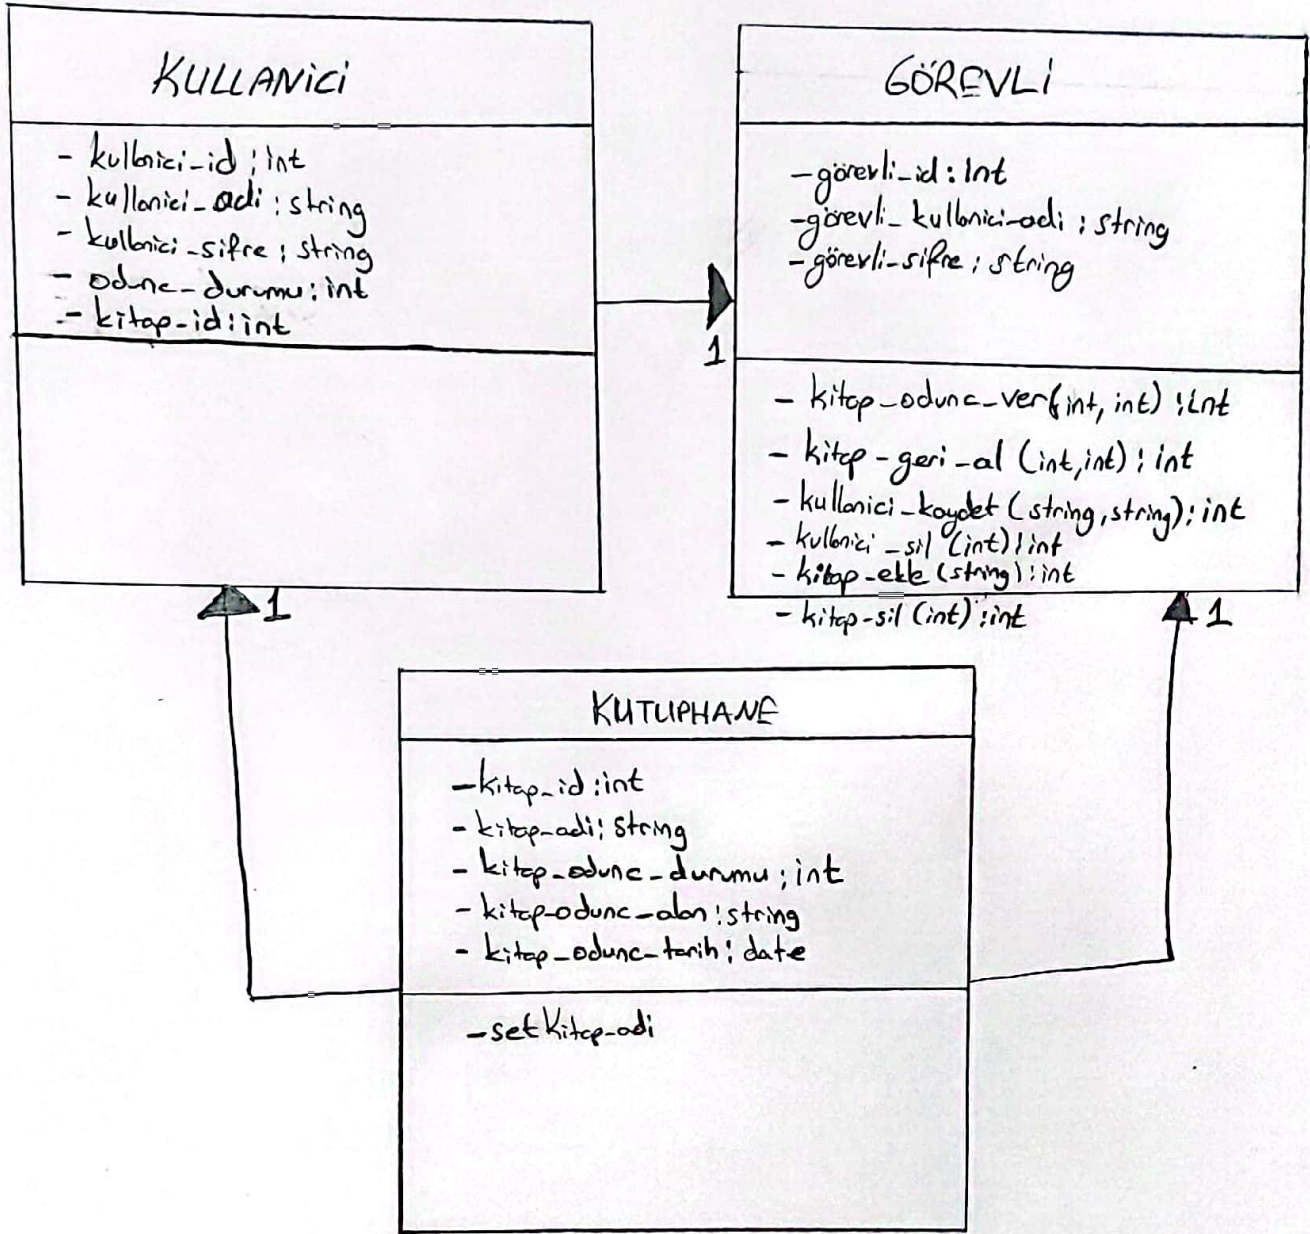 KULLANiCi
- kullanici-id : int
- kullanici-adi : string
- kullanici-sifre : string
- odunc-durumu : int
- kitap-id : int
1
GÖREVLi
- görevli-id : int
- görevli-kullanici-adi : string
- görevli-sifre : string
1
- kitap-odunc-ver(int, int) : int
- kitap-geri-al (int,int) : int
- kullanici-kaydet (string,string) : int
- kullanici-sil (int) : int
- kitap-ekle (string) : int
- kitap-sil (int) : int
1
KUTUPHANE
- kitap-id : int
- kitap-adi : string
- kitap-odunc-durumu : int
- kitap-odunc-alan : string
- kitap-odunc-tarih : date
- setKitap-adi